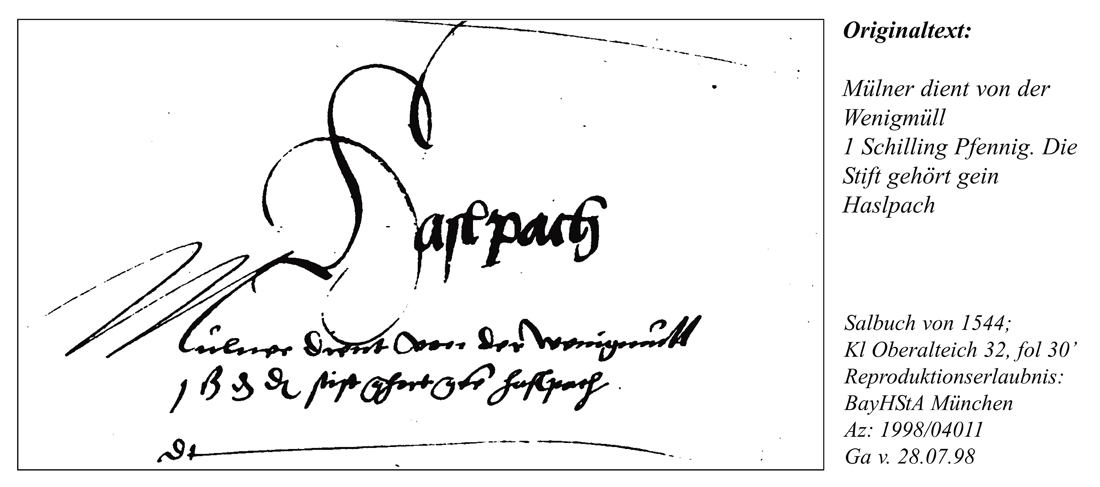 Haslpach
Mülner dient von der wenigmüll
1 ß ₰ die stift ghort gein haslpach
dt
Originaltext:
Mülner dient von der
Wenigmüll
1 Schilling Pfennig. Die
Stift gehört gein
Haslpach
Salbuch von 1544;
Kl Oberalteich 32, fol 30’
Reproduktionserlaubnis:
BayHStA München
Az: 1998/04011
Ga v. 28.07.98